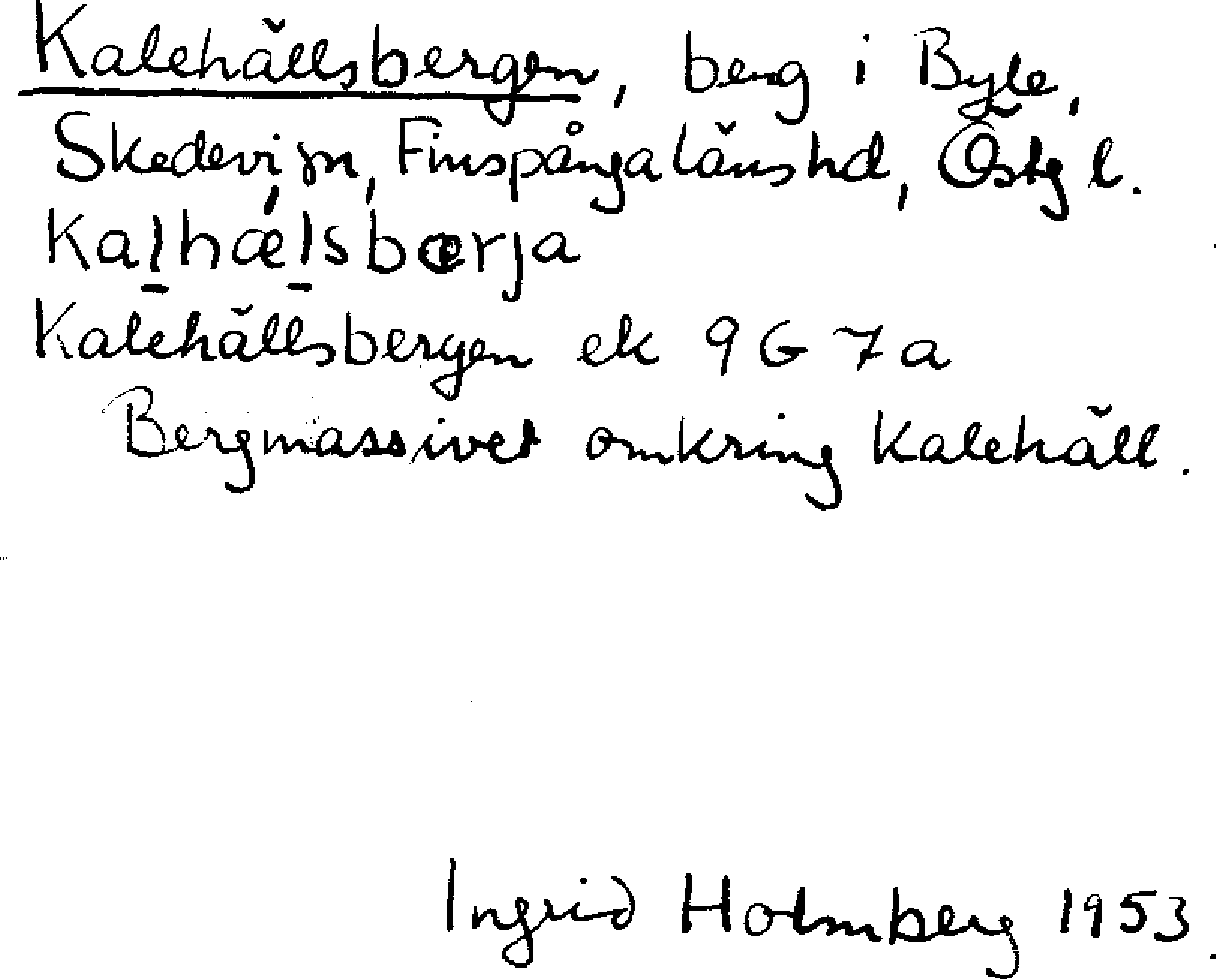 Kalehällsbergen, berg i Byle,
Skedevi sn, Finspånga läns hd, Östg l.
Kalhælsbærja
Kalehällsbergen ek 9G 7a
Bergmassivet omkring Kalehäll.
Ingrid Holmberg 1953.